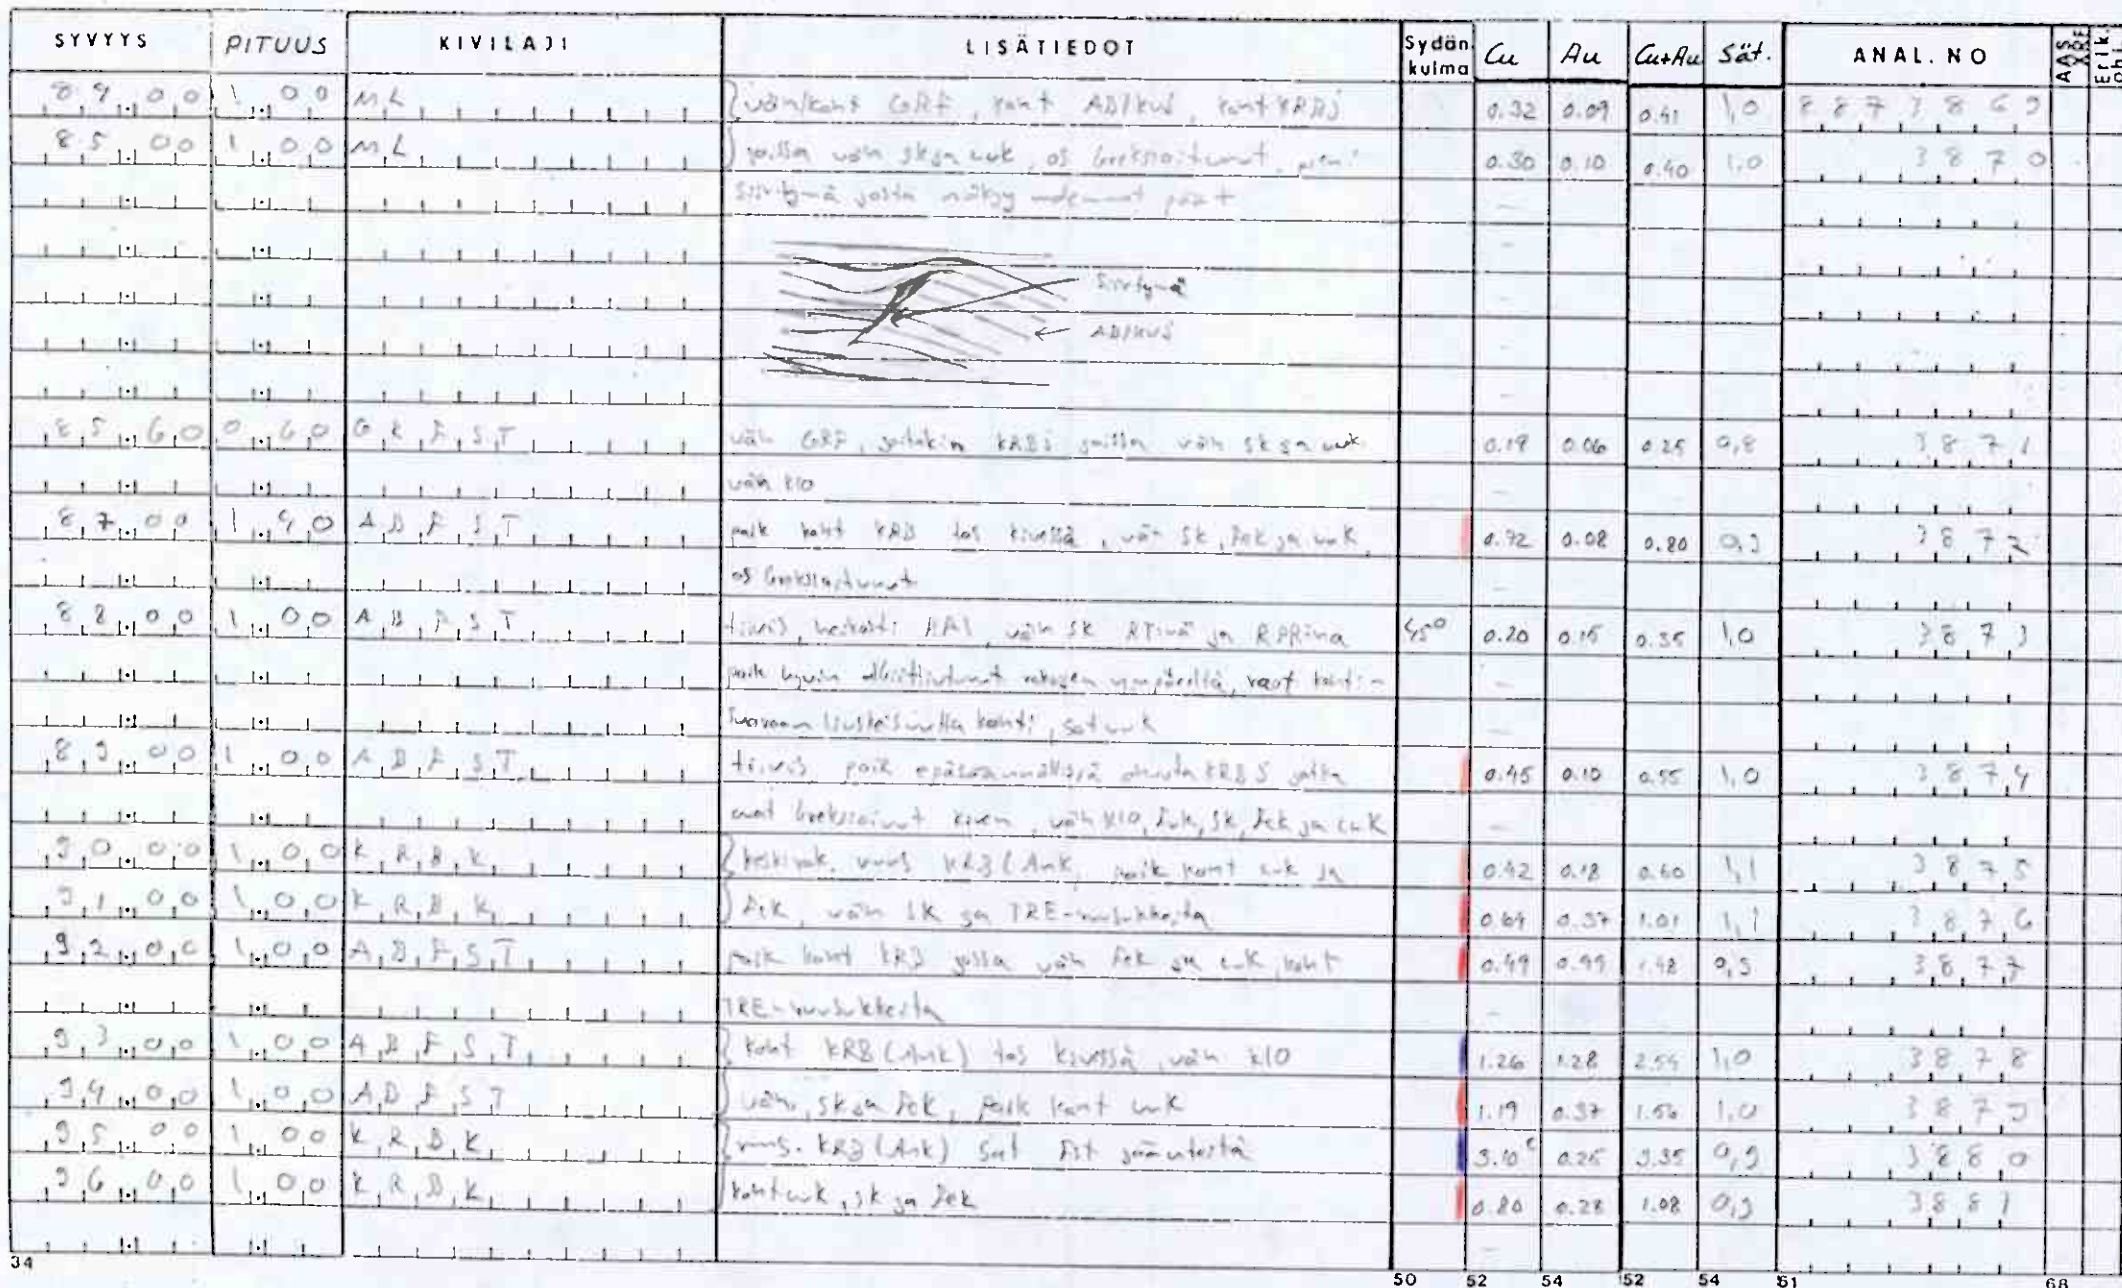 SYVYYS PITUUS KIVILAJI LISÄTIEDOT Sydän. kulma Cu Au Cu+Au Sät. ANAL. NO AAS XRF Erik. ohj.
84.00 1.00 ML väh/koht GRF, koht AB/KVS, koht KRBJ 0.32 0.09 0.41 1,0 8873869
85.00 1.00 ML joissa väh sk ja cuk, os breksioitunut, pieni 0.30 0.10 0.40 1,0 3870
Siirtymä josta näkyy päät
Siirtymä
AB/KVS
85.60 0.60 GRFST väh GRF, joitakin KRBJ joissa väh sk ja cuk 0.19 0.06 0.25 0,8 3871
väh KIO
87.00 1.40 ABFST paik koht KRB tas kivessä, väh sk, Fek ja cuk 0.72 0.08 0.80 0,9 3872
os breksioitunut
88.00 1.00 ABFST tiivis, heikosti väh SK ja 45° 0.20 0.15 0.35 1,0 3873
paik hyvin albiittiutunut rakojen ympäreiltä, raot kohti-
suoraan liuskeisuutta kohti, sat cuk
89.00 1.00 ABFST tiivis, paik KRBJ jotka 0.45 0.10 0.55 1,0 3874
ovat breksioinut kiven, väh KIO, sk, Fek ja cuk
90.00 1.00 KRBK keskirak. KRB (Ank, paik koht cuk ja 0.42 0.18 0.60 1,1 3875
91.00 1.00 KRBK Fek, väh SK ja TRE-ruusukkeita 0.64 0.37 1.01 1,1 3876
92.00 1.00 ABFST paik koht KRB jossa väh Fek ja cuk, koht 0.49 0.99 1.48 0,9 3877
TRE-ruusukkeita
93.00 1.00 ABFST koht KRB (Ank) tas kivessä, väh KIO 1.26 1.28 2.54 1,0 3878
94.00 1.00 ABFST väh, sk ja Fek, paik koht cuk 1.19 0.37 1.56 1,0 3879
95.00 1.00 KRBK KRB (Ank) sat Fst jäänteitä 3.10 0.25 3.35 0,9 3880
96.00 1.00 KRBK koht cuk, sk ja Fek 0.80 0.28 1.08 0,9 3881
34 50 52 54 52 54 61 68